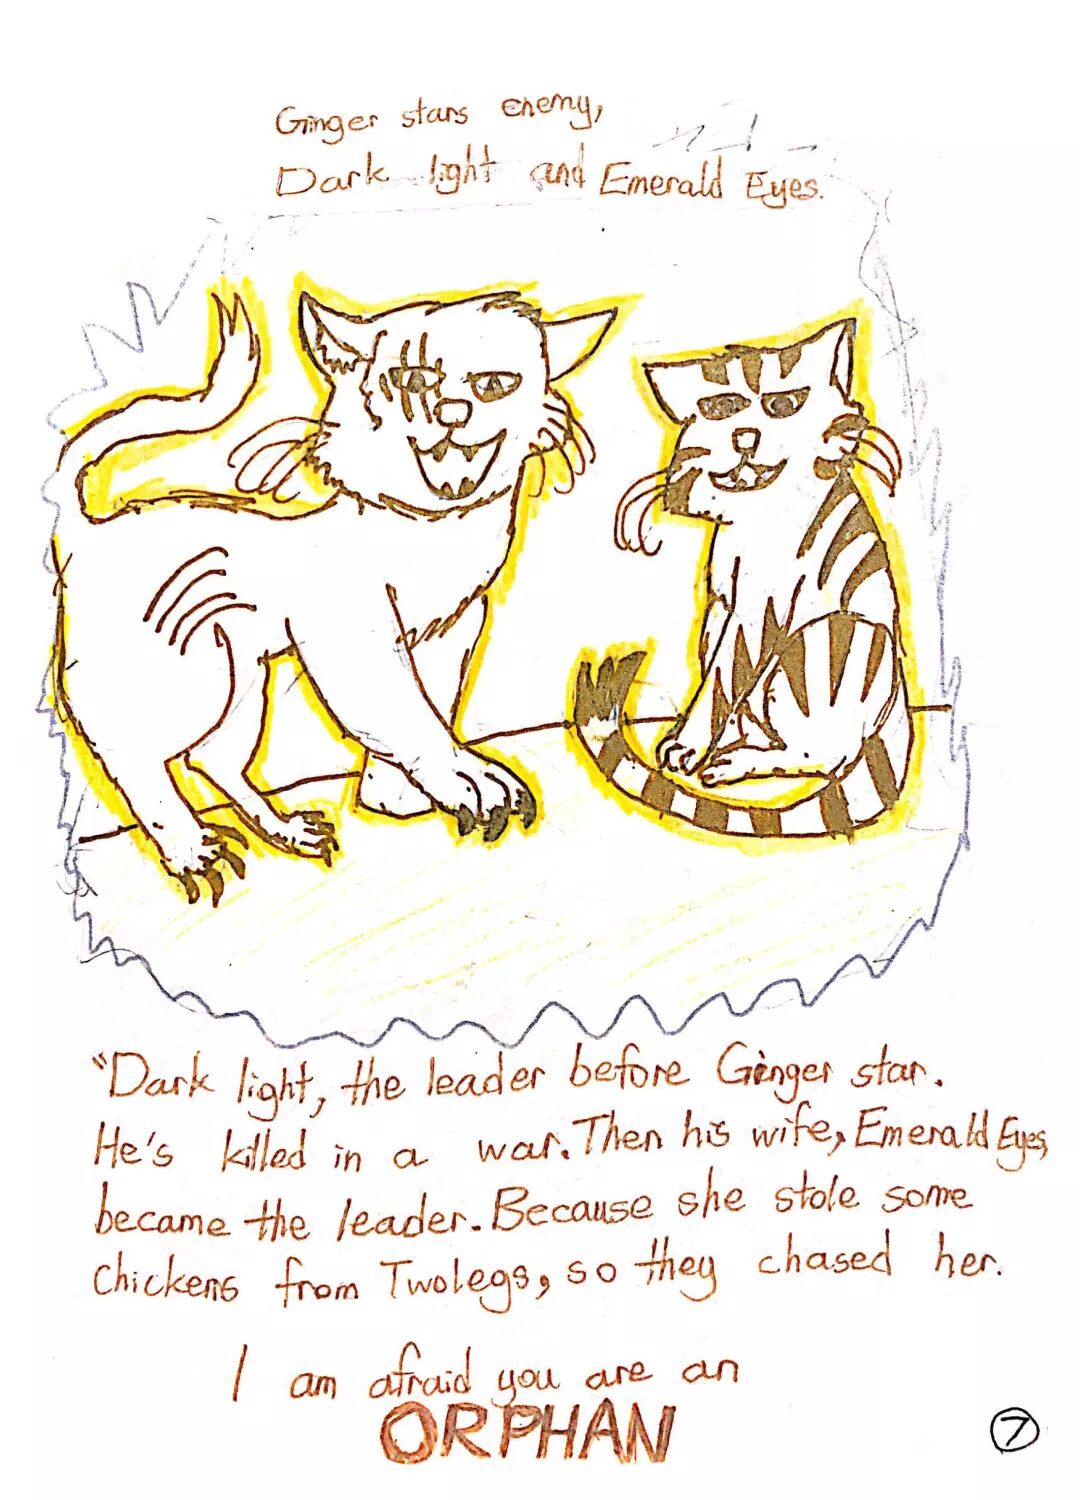 Ginger stars enemy,
Dark light and Emerald Eyes.
"Dark light, the leader before Ginger star.
He's killed in a war. Then his wife, Emerald Eyes,
became the leader. Because she stole some
chickens from Twolegs, so they chased her.
I am afraid you are an
ORPHAN
7